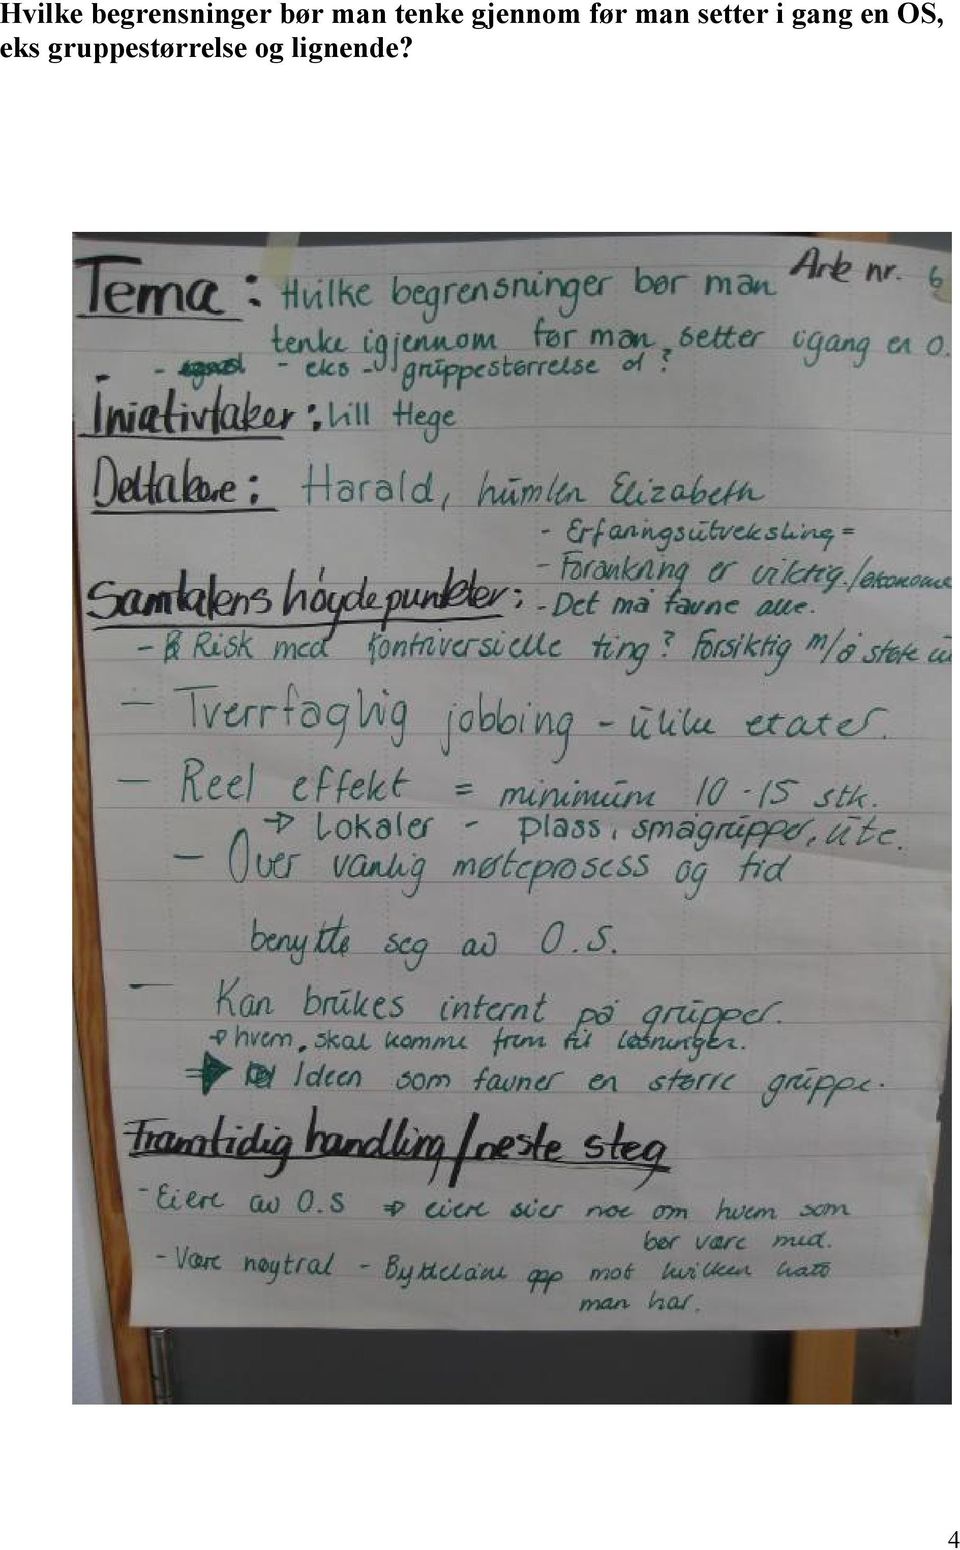 Hvilke begrensninger bør man tenke gjennom før man setter i gang en OS,
eks gruppestørrelse og lignende?
Tema: Hvilke begrensninger bør man Ark nr. 6
tenke igjennom før man setter igang en O.
- - - eks - gruppestørrelse ol?
Iniativtaker: Lill Hege
Deltakere: Harald, humlen Elizabeth
- Erfaringsutveksling =
- Forankning er viktig./økonomi
Samtalens høydepunkter: - Det må favne alle.
- Risk med kontriversielle ting? Forsiktig m/å støte
- Tverrfaglig jobbing - ulike etater.
- Reel effekt = minimum 10-15 stk.
→ Lokaler - plass, smågrupper, ute.
- Over vanlig møteprosess og tid
benytte seg av O.S.
- Kan brukes internt på grupper.
→ hvem skal komme frem til løsninger.
→ Ideen som favner en større gruppe.
Framtidig handling/neste steg
- Eiere av O.S → eiere sier noe om hvem som
bør være med.
- Være nøytral - opp mot hvilken hatt
man har.
4